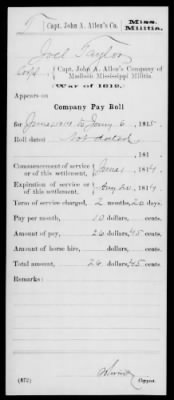 T Capt. John A. Allen's Co. Miss. Militia.
Joel Taylor
Corpl., Capt. John A. Allen's Company of Madison Mississippi Militia.
(War of 1812.)
Appears on
Company Pay Roll
for June 1814 to Jany 6, 1815
Roll dated Not dated
, 181 .
Commencement of service or of this settlement, June 1, 1814
Expiration of service or of this settlement, Aug 20, 1814
Term of service charged, 2 months, 20 days.
Pay per month, 10 dollars, cents.
Amount of pay, 26 dollars, 45 cents.
Amount of horse hire, dollars, cents.
Total amount, 26 dollars, 45 cents.
Remarks:
(672) Copyist.